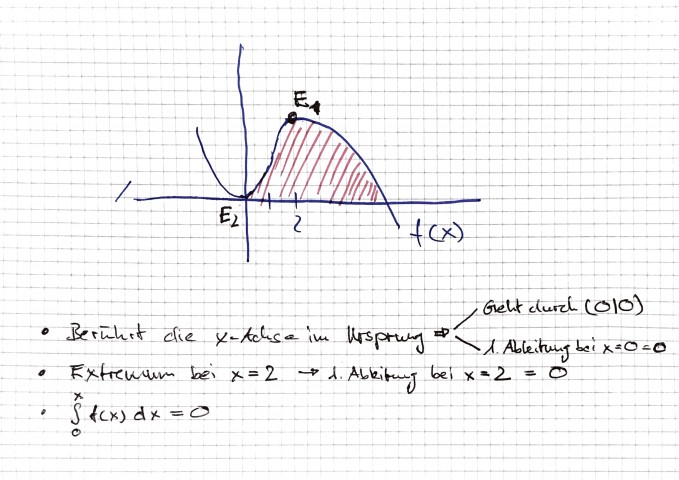 E1
E2
2
f(x)
Geht durch (0|0)
• Berührt die x-Achse im Ursprung ⇒
1. Ableitung bei x=0=0
• Extremum bei x=2 → 1. Ableitung bei x=2 = 0
• ∫₀ˣ f(x) dx = 0